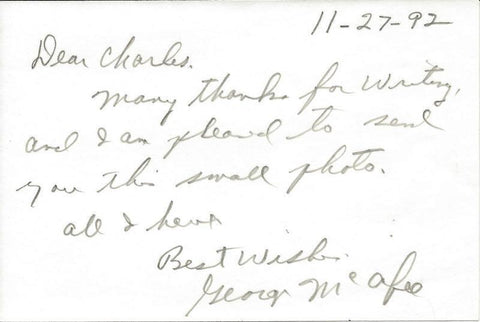 11-27-92
Dear Charles.
Many thanks for writing,
and I am pleased to send
you this small photo.
all I have
Best Wishes.
George McAfee